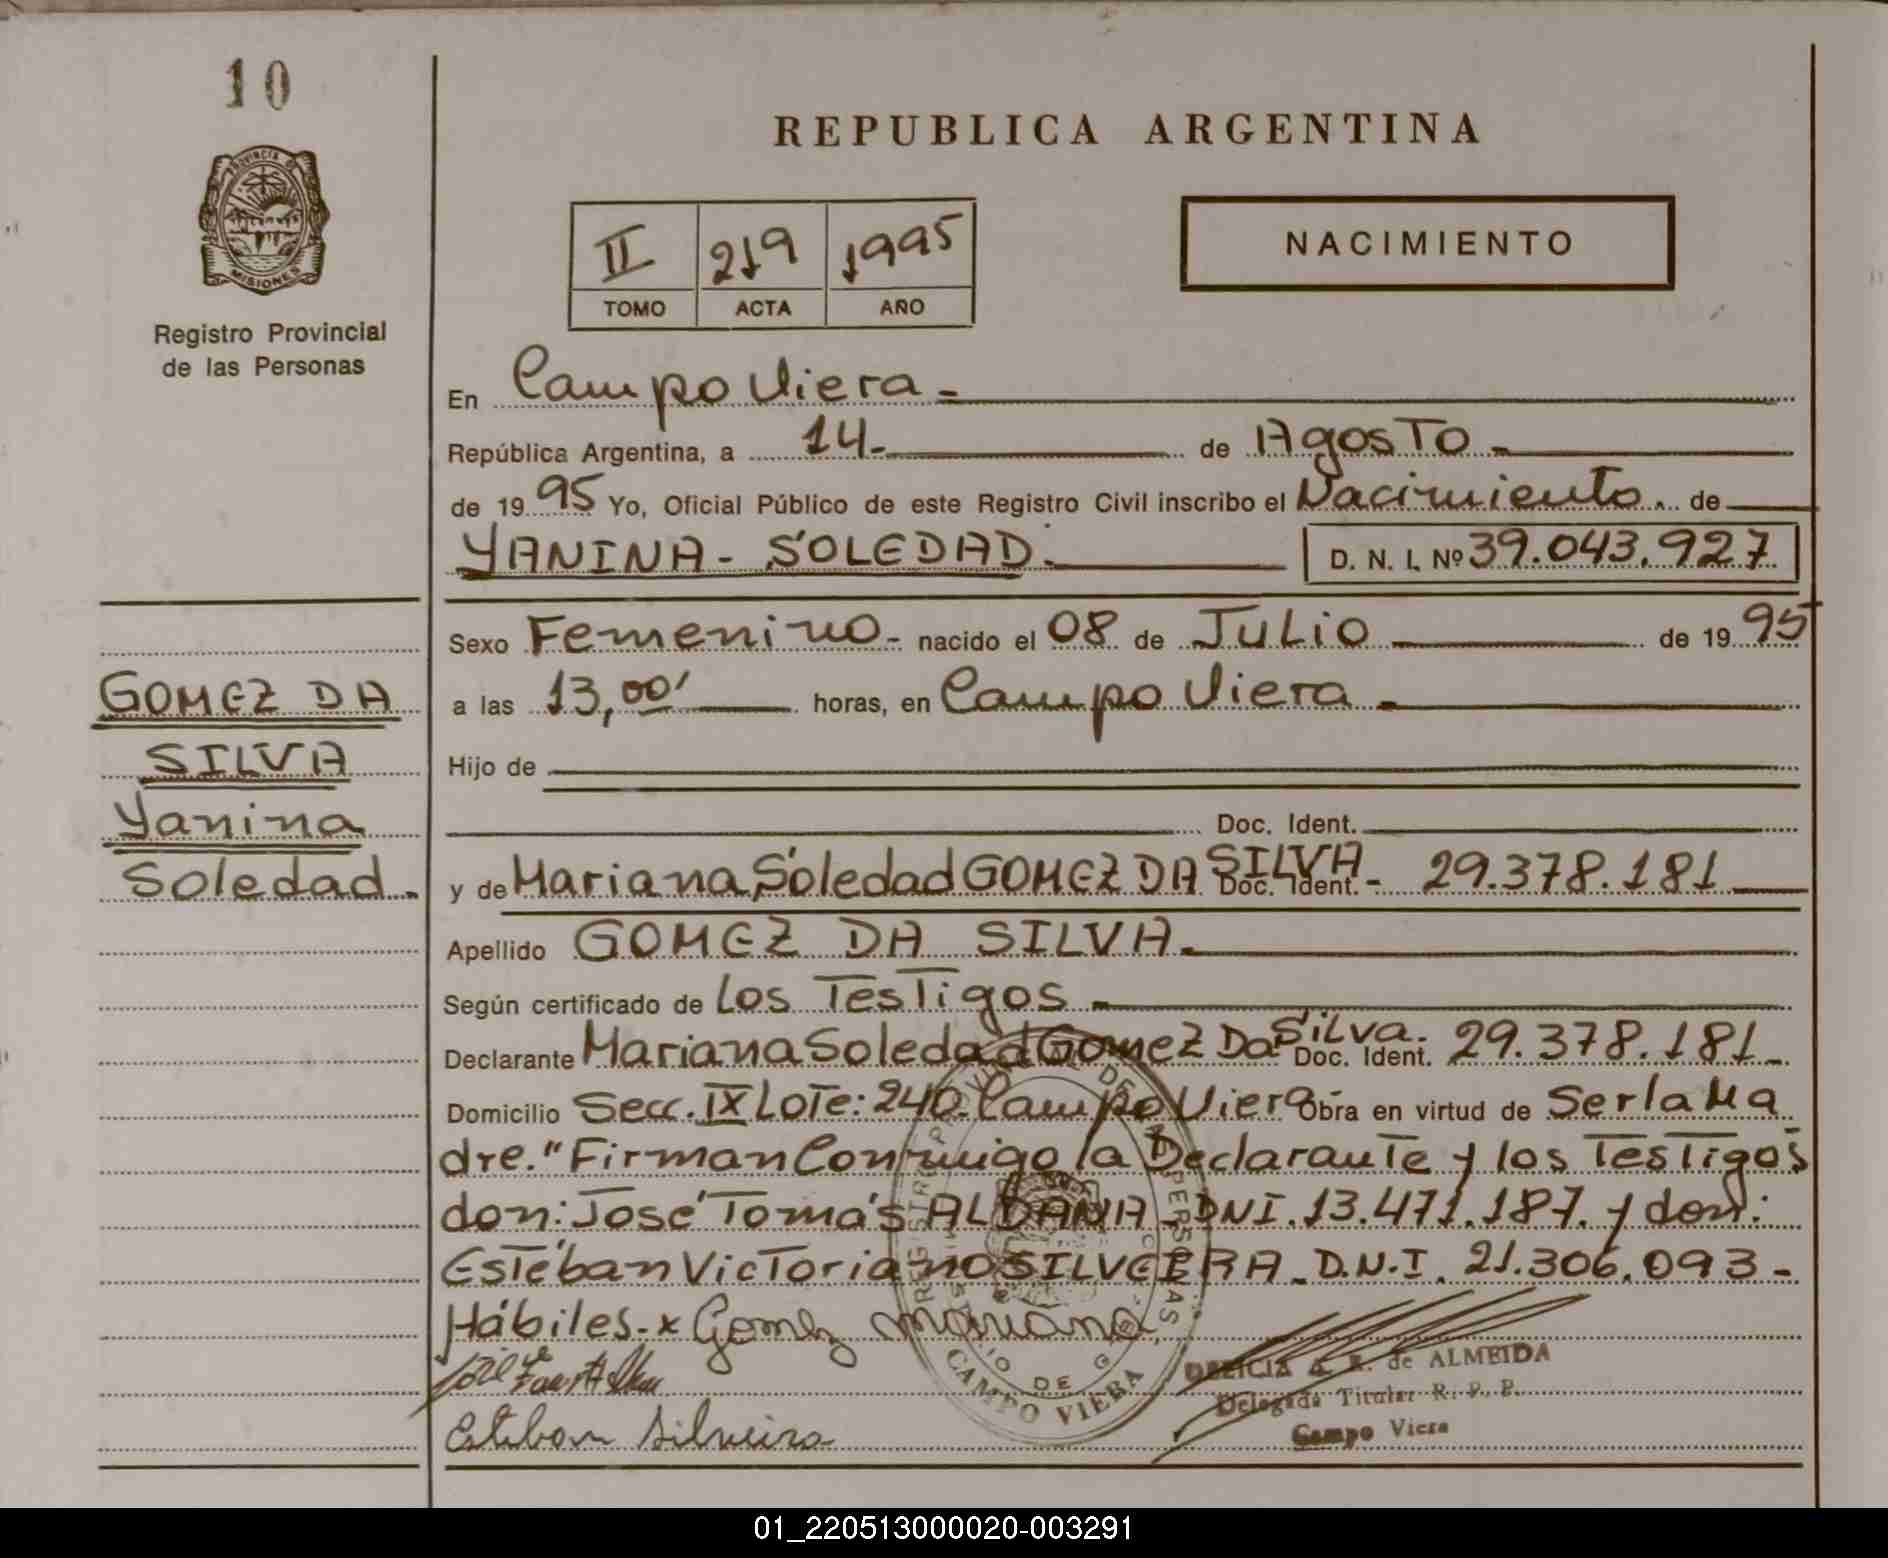 10
REPUBLICA ARGENTINA
PROVINCIA DE
MISIONES
II 219 1995
TOMO ACTA AÑO
NACIMIENTO
Registro Provincial
de las Personas
En Campo Viera -
República Argentina, a 14- de Agosto -
de 19 95 Yo, Oficial Público de este Registro Civil inscribo el Nacimiento de
YANINA - SOLEDAD. D. N. I. Nº 39.043.927
Sexo Femenino - nacido el 08 de Julio de 19 95
GOMEZ DA
SILVA
Yanina
Soledad.
a las 13,00' horas, en Campo Viera -
Hijo de
Doc. Ident.
y de Mariana Soledad GOMEZ DA SILVA - Doc. Ident. 29.378.181
Apellido GOMEZ DA SILVA.
Según certificado de Los Testigos -
Declarante Mariana Soledad Gomez Da Silva. Doc. Ident. 29.378.181-
Domicilio Secc. IX Lote: 240. Campo Viera Obra en virtud de Ser la Ma
dre." Firman Conmigo la Declarante y los Testigos
don: José Tomás ALDANA. DNI. 13.471.187. y don:
Estéban Victoriano SILVEIRA. D.N.I. 21.306.093-
Hábiles.- x Gomez Mariana
Esteban Silveira
REGISTRO PROVINCIAL DE LAS PERSONAS
CAMPO VIERA
DELICIA A. R. de ALMEIDA
Delegada Titular R. P. P.
Campo Viera
01_220513000020-003291